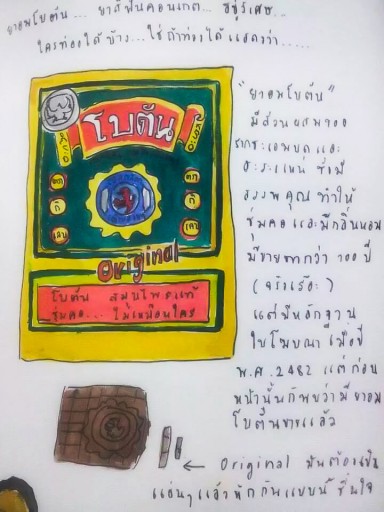 ยาอมโบตัน... ยาสีฟันคอนเกต... วิเศษ...
ใครท่องได้บ้าง...ใช่ ถ้าท่องได้แสดงว่า.....
"ยาอมโบตัน"
มีส่วนผสมของ
รากชะเอมเทศและ
สะระแหน่ ซึ่งมี
สรรพคุณทำให้
ชุ่มคอและมีกลิ่นหอม
มีขายมากกว่า ๑๐๐ ปี
(จริงเร้อะ)
แต่มีหลักฐาน
ใบโฆษณาเมื่อปี
พ.ศ.2482 แต่ก่อน
หน้านั้นก็พบว่ามียาอม
โบตันขายแล้ว
โบตัน
ตก
ตก
กี่
กี่
เลน
เลน
Original
โบตัน สมุนไพรแท้
ชุ่มคอ... ไม่เหมือนใคร
Original มันต้องเป็น
แผ่นๆแล้วหักกินแบบนี้ ชื่นใจ